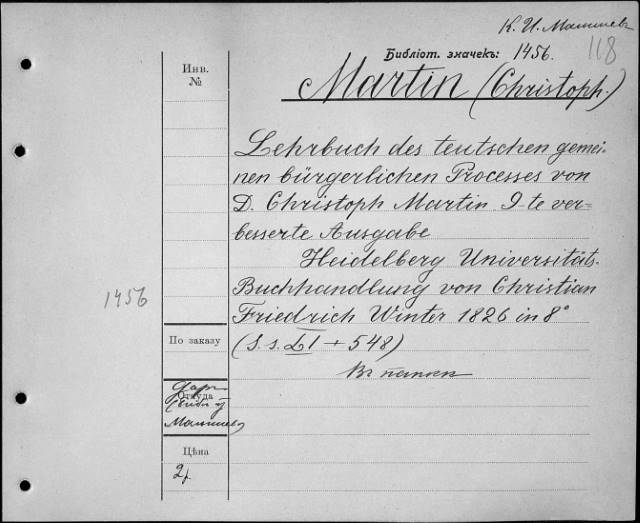 К. И. Малышев
118
Библіот. значекъ: 1456.
Инв.
№
Martin (Christoph.)
Lehrbuch des teutschen gemei-
nen bürgerlichen Processes von
D. Christoph Martin 9-te ver-
besserte Ausgabe
Heidelberg Universität-
Buchhandlung von Christian
Friedrich Winter 1826 in 8°
1456
По заказу
(S. s. LI + 548)
Въ папкѣ
Откуда
Цѣна
2р.